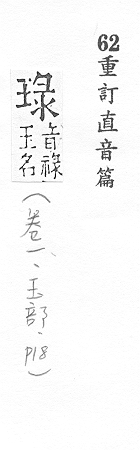 62重訂直音篇
琭
音祿
玉名
(卷一、玉部,P18)